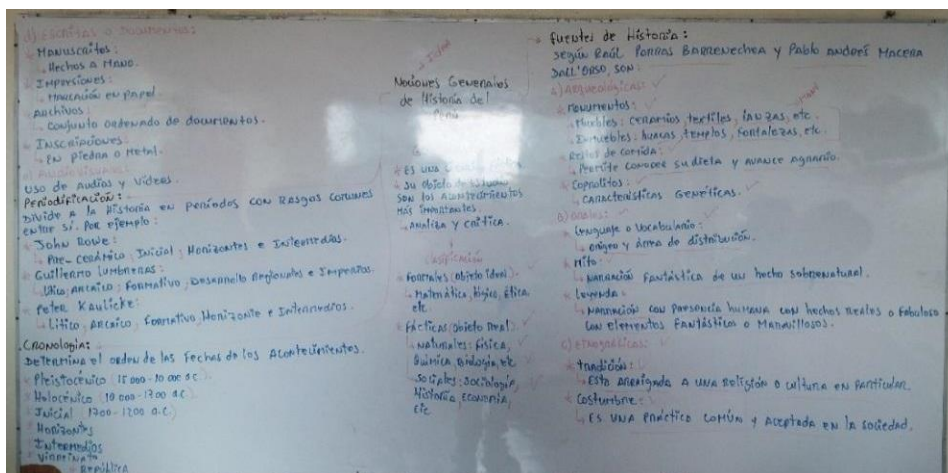 d) Escritas o Documentos:
* Manuscritos:
↳ Hechos a Mano.
* Impresiones:
↳ Marcación en papel
* Archivos:
↳ Conjunto ordenado de documentos.
* Inscripciones:
↳ En piedra o metal.
e) Audiovisuales:
Uso de Audios y Videos.
Periodificación:
Divide a la Historia en periodos con Rasgos comunes
entre sí. Por ejemplo:
* John Rowe:
↳ Pre-cerámico, Inicial, Horizontes e Intermedios.
* Guillermo Lumbreras:
↳ Lítico, Arcaico, Formativo, Desarrollo Regionales e Imperios.
* Peter Kaulicke:
↳ Lítico, Arcaico, Formativo, Horizonte e Intermedios.
Cronología:
Determina el orden de las fechas de los Acontecimientos.
* Pleistocénico (15 000 - 10 000 a.c.)
* Holocénico (10 000 - 1700 a.c.)
* Inicial (1700 - 1200 a.c.)
* Horizontes
* Intermedios
* Virreinato
* República
Nociones Generales
de Historia del
Perú
* Es una
* Su objeto de estudio
son los acontecimientos
más importantes.
- Analiza y critica.
Clasificación
* Formales (objeto ideal)
↳ Matemática, lógica, ética,
etc.
* Fácticas (objeto real)
↳ Naturales: física,
Química, Biología, etc
↳ Sociales: Sociología,
Historia, Economía,
etc
Fuentes de Historia:
Según Raúl Porras Barrenechea y Pablo Andreí Macera
Dall'Orso, son:
a) Arqueológicas:
* Monumentos:
↳ Muebles: Ceramios, textiles, lanzas, etc.
↳ Inmuebles: Huacas, templos, fortalezas, etc.
* Restos de comida:
↳ Permite conocer su dieta y avance agrario.
* Coprolitos:
↳ Características Genéticas.
b) Orales:
* Lenguaje o Vocabulario:
↳ Origen y área de distribución.
* Mito:
↳ Narración fantástica de un hecho sobrenatural.
* Leyenda:
↳ Narración con presencia humana con hechos reales o fabuloso
con elementos fantásticos o Maravillosos.
c) Etnográficas:
* Tradición:
↳ Esta arraigada a una religión o cultura en particular.
* Costumbre:
↳ Es una práctica común y aceptada en la sociedad.